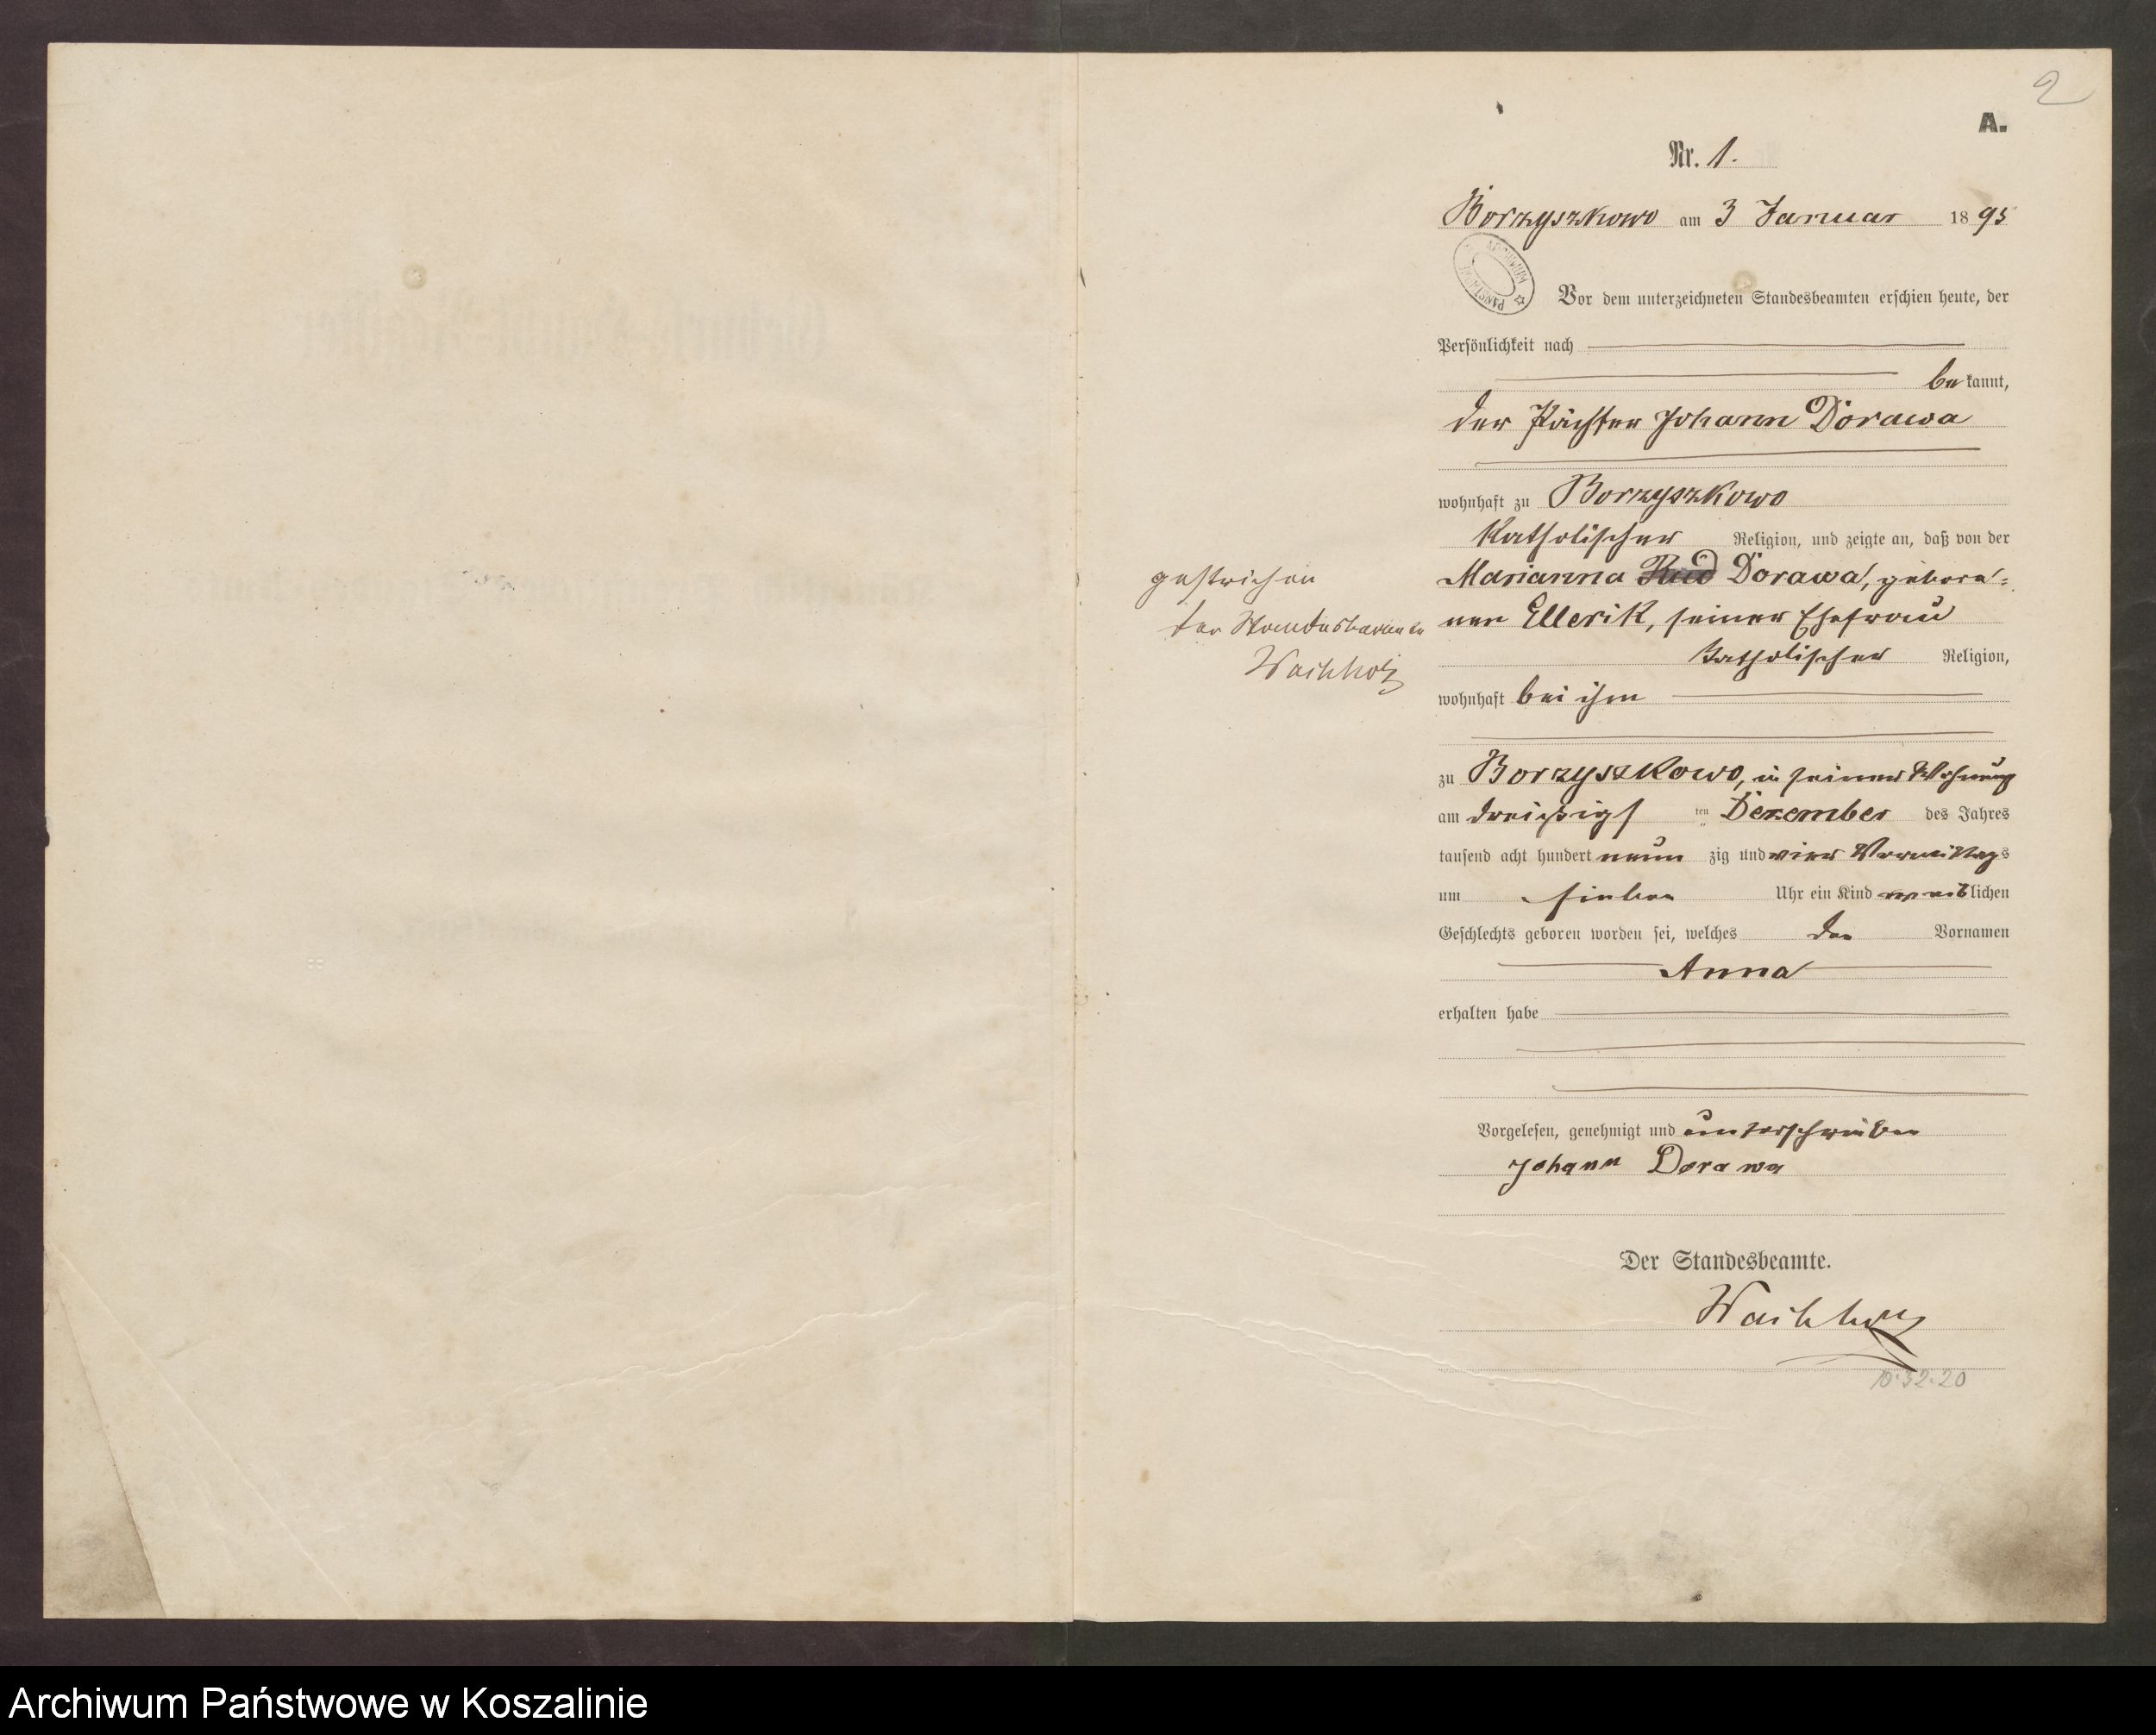 2
A.
Nr. 1.
Borzyszkowo am 3 Januar 1895
ARCHIWUM PAŃSTWOWE
Vor dem unterzeichneten Standesbeamten erschien heute, der
Persönlichkeit nach
be kannt,
der Pächter Johann Dorawa
wohnhaft zu Borzyszkowo
katholischer Religion, und zeigte an, daß von der
Marianna Dorawa, gebore=
nen Ellerik, seiner Ehefrau
katholischer Religion,
wohnhaft bei ihm
zu Borzyszkowo, in seiner Wohnung
am dreißigs ten Dezember des Jahres
tausend acht hundert neun zig und vier Vormittags
um sieben Uhr ein Kind weiblichen
Geschlechts geboren worden sei, welches den Vornamen
Anna
erhalten habe
Vorgelesen, genehmigt und unterschrieben
Johann Dorawa
Der Standesbeamte.
Wachholz
10.32.20
gestrichen
der Standesbeamte
Wachholz
Archiwum Państwowe w Koszalinie